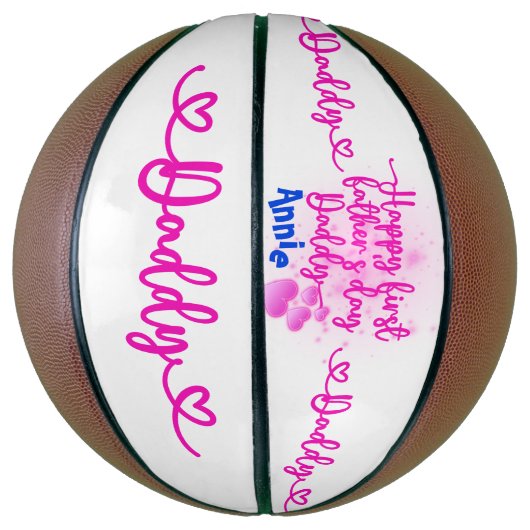 Daddy
Daddy
Happy first
father's day
Daddy
Annie
Daddy